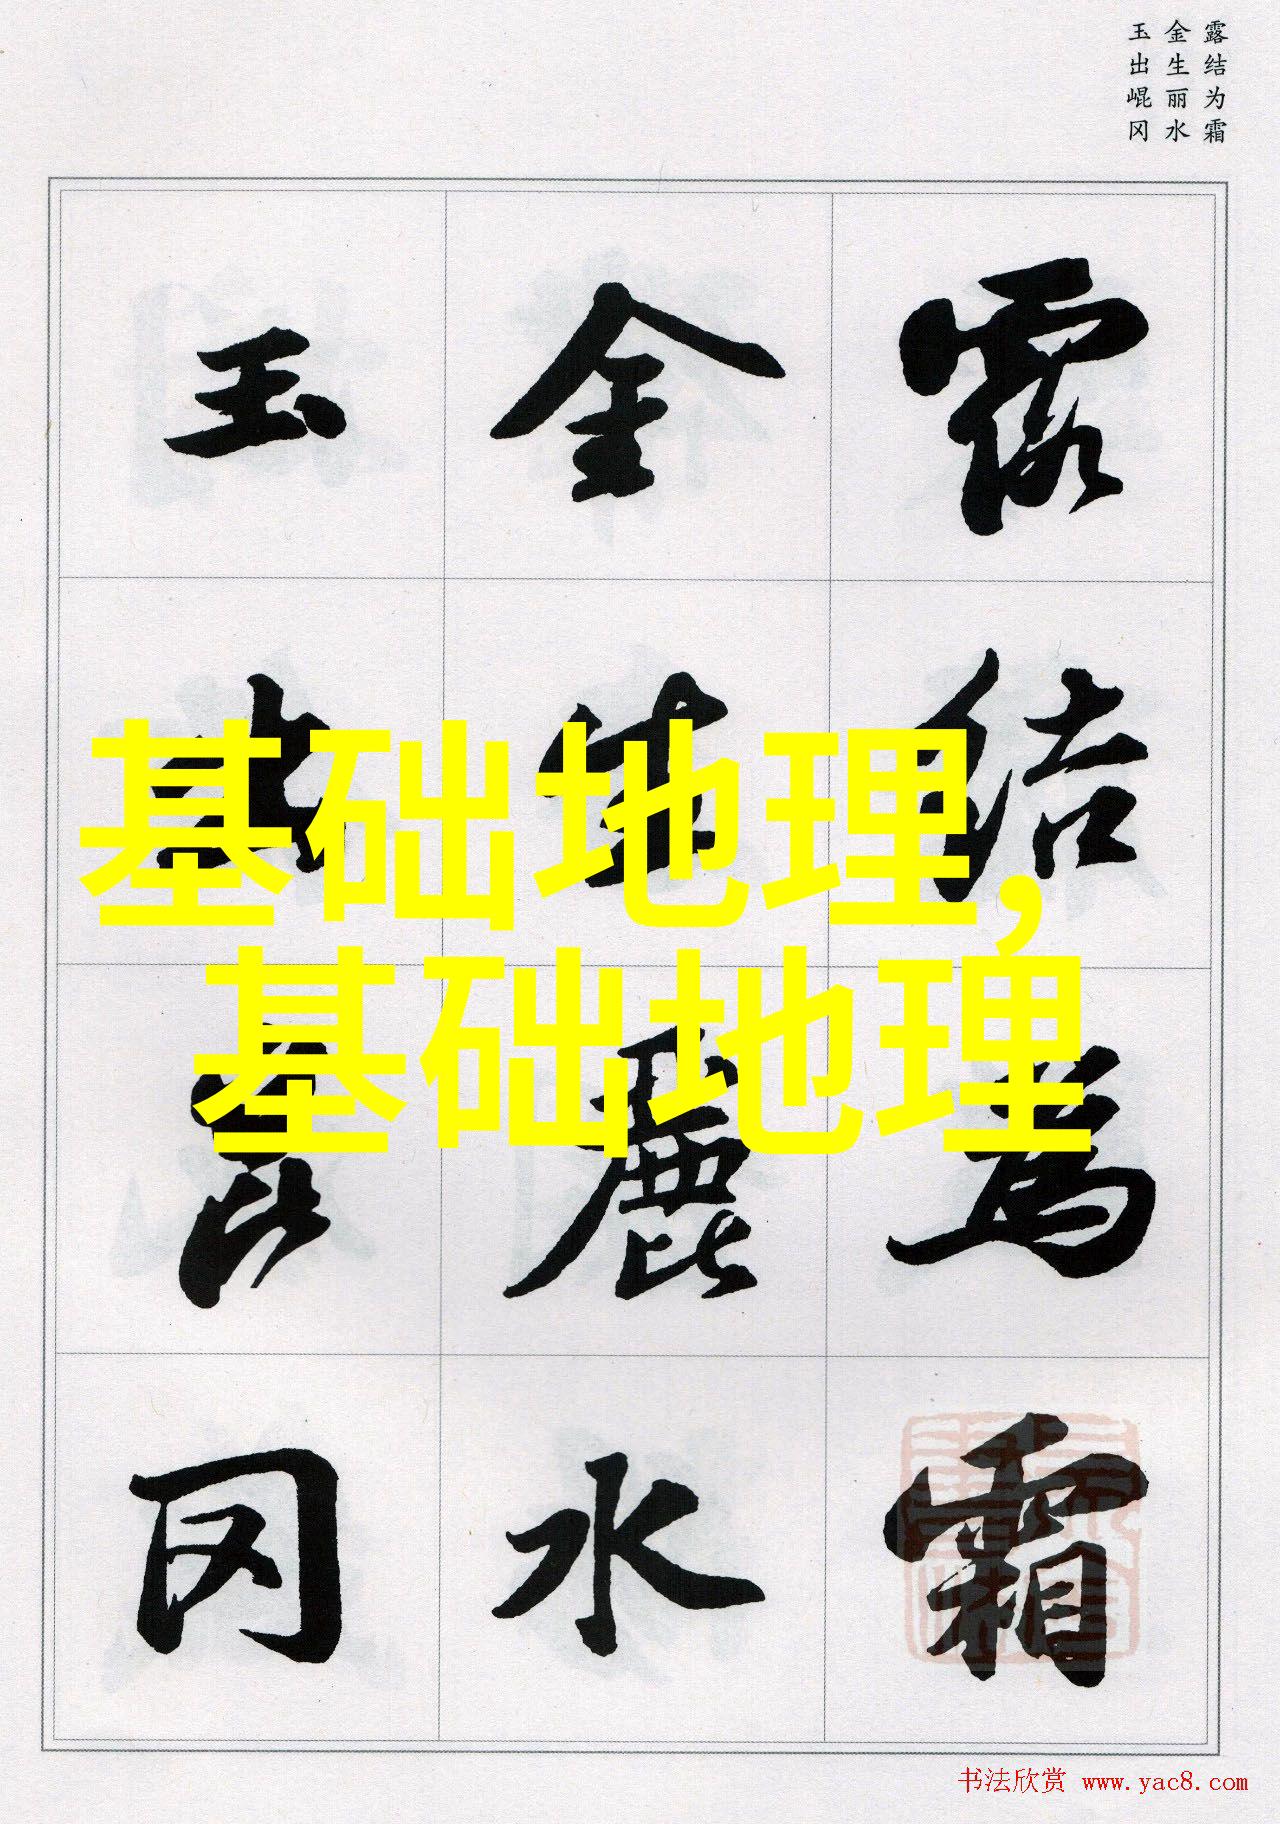 露结为霜
金生丽水
玉出崐冈
露结為霜
金生麗水
玉出崑冈
基础地理,
基础地理
书法欣赏 www.yac8.com